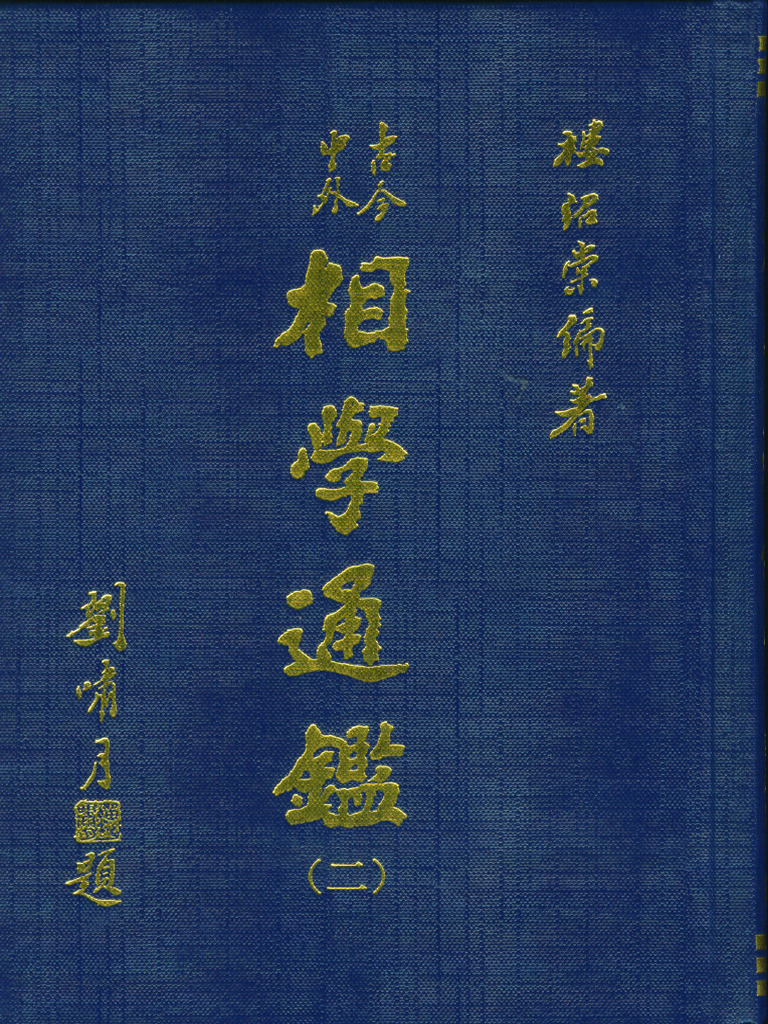 樓紹棠編著
古今
中外
相學通鑑(二)
劉嘯月
題